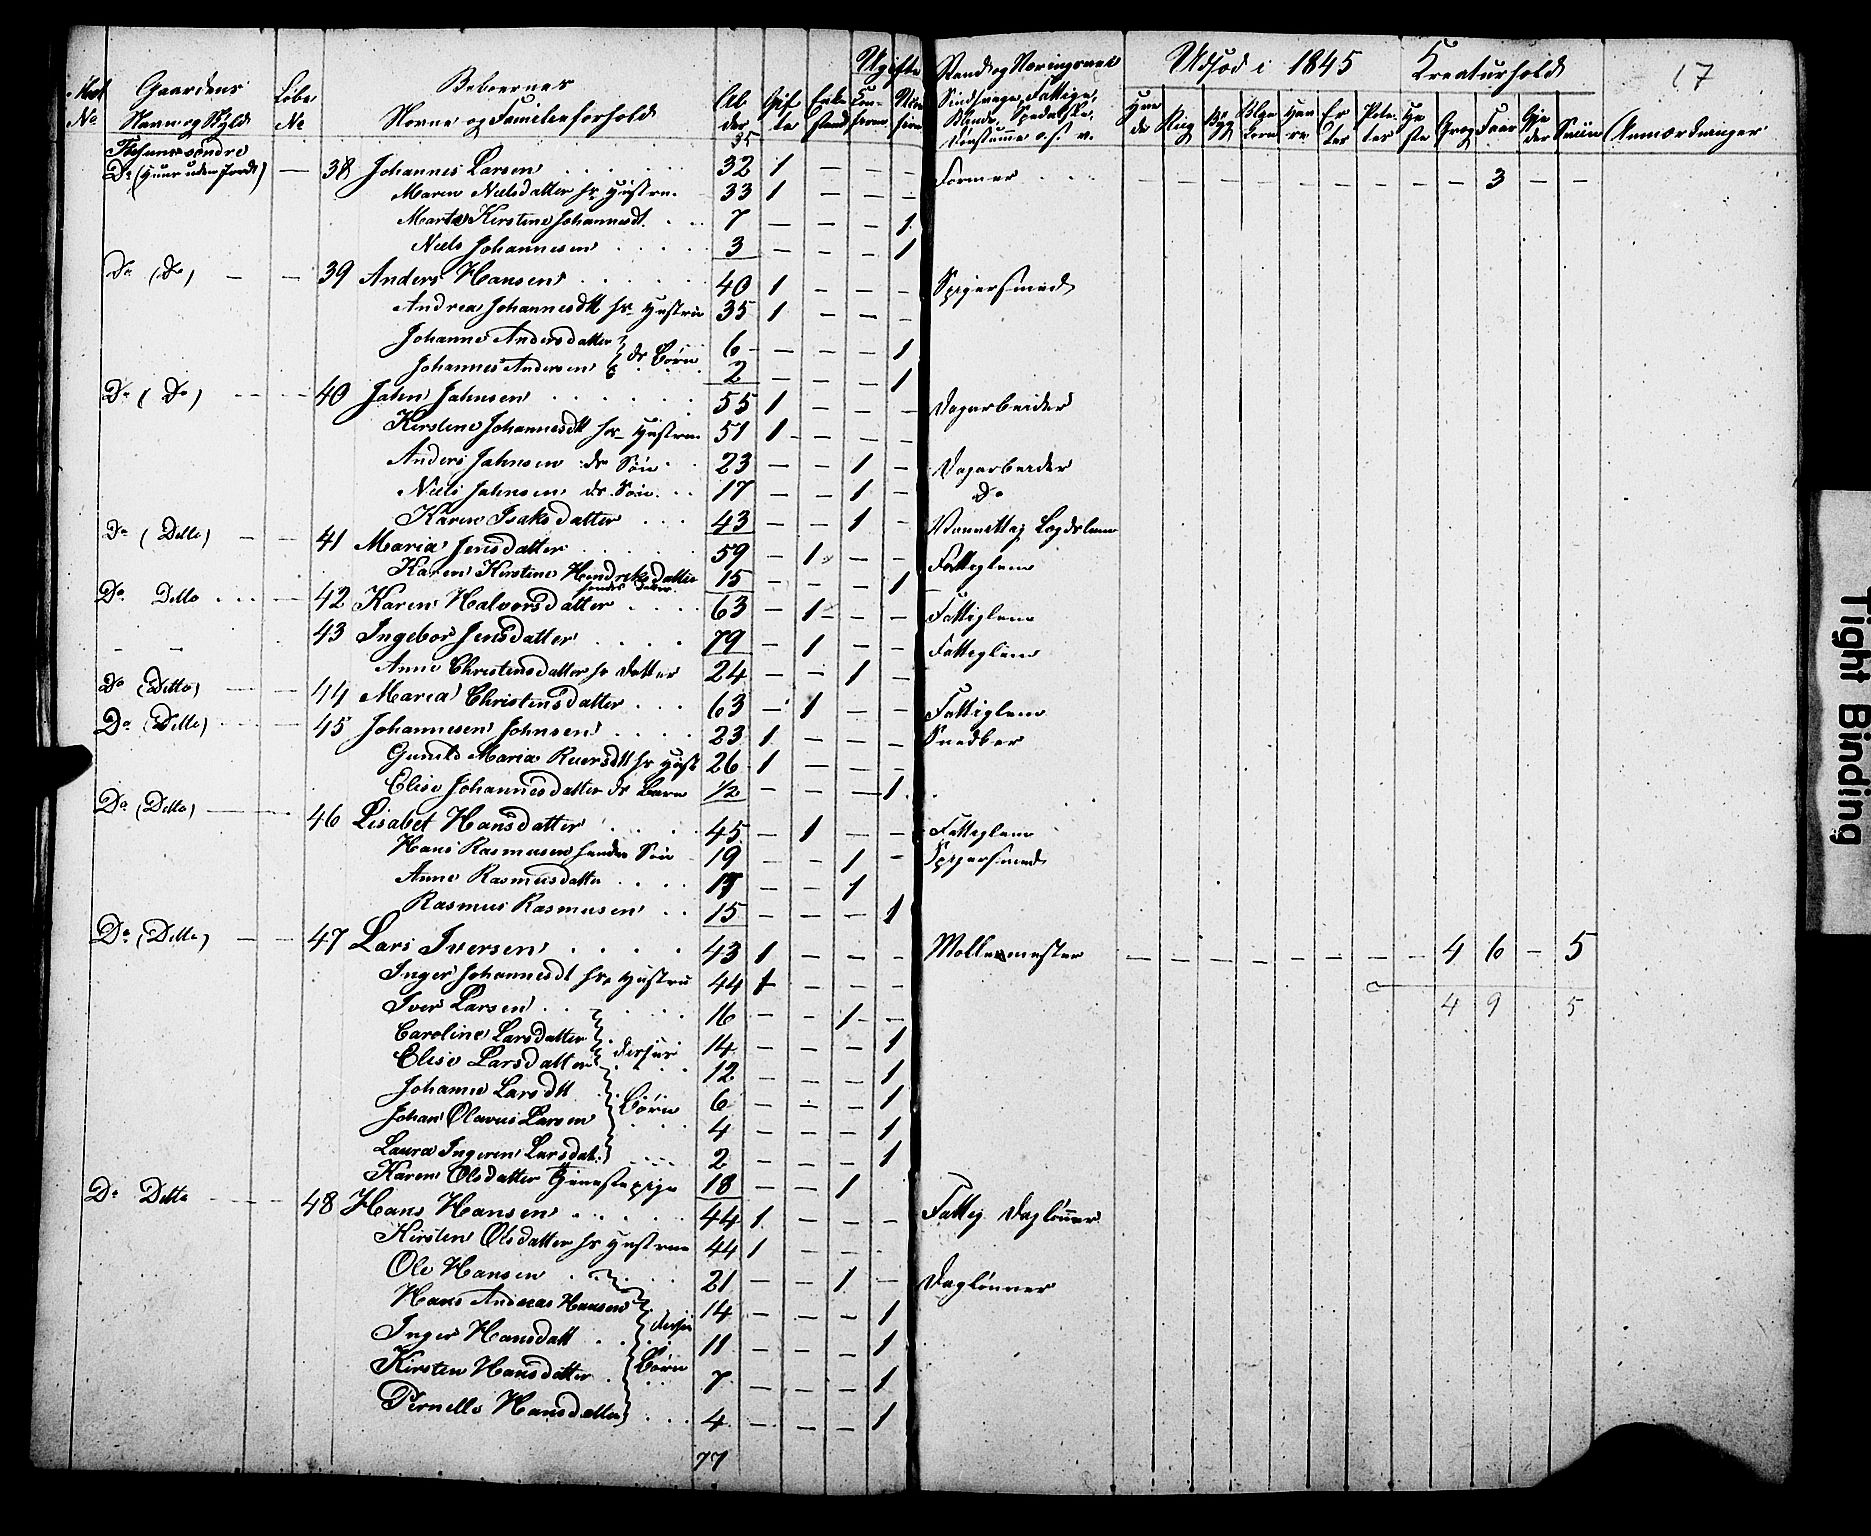 17
Ugifte
Gaardens Løbe Beboernes Stand og Næringsvei Udsæd i 1845 Kreaturhold
No Navn og No Navne og Familieforhold Alder Gifte Enkestand Sindsvage, Fattige, Blinde, Spedalske, Døvstumme o.s.v. Hvede Rug Byg Havre Erter Poteter Heste Faar Sviin Anmærkninger
35
Do (Huus uden Jord) — 38 Johannes Larsen 32 1 — — — Former 3 — —
Maren Nielsdatter hs Hustru 33 1 — — —
Marte Kirstine Johannesdt. 7 — — — 1
Niels Johannesen 3 — — — 1
Do (Do) — — 39 Anders Hansen 40 1 — — — Spigersmed
Andrea Johannesdtt hs Hustru 35 1 — — —
Johanne Andersdatter 6 — — — 1
Johannes Andersen } ds Børn 2 — — — 1
Do (Do) — — 40 Jahn Jahnsen 55 1 — — — Dagarbeider
Kirstine Johannesdtt hs Hustru 51 1 — — —
Anders Jahnsen ds Søn 23 — — 1 — Dagarbeider
Niels Jahnsen ds Søn 17 — — 1 — Do
Karen Isaksdatter 43 — — 1 — Lægdslem
Do (Ditto) — — 41 Maria Jensdatter 59 — 1 — — Fattiglem
Karen Kirstine Hendriksdatter 15 — — — 1
hendes Datter
Do Ditto — 42 Karen Halvorsdatter 63 — 1 — — Fattiglem
— — 43 Ingebor Jensdatter 79 — 1 — — Fattiglem
Anne Christensdatter hs Datter 24 — — 1 —
Do (Ditto) — — 44 Maria Christensdatter 63 — 1 — — Fattiglem
Do (Ditto) — 45 Johannesen Johnsen 23 1 — — — Snedker
Maria hs Hust 26 1 — — —
Elise Johannesdatter ds Barn 1/2 — — — 1
Do (Ditto) — 46 Lisabet Hansdatter 45 — 1 — — Fattiglem
Hans Rasmusen hendes Søn 19 — — 1 — Spigersmed
Anne Rasmusdatter — — 1
Rasmus Rasmusen 15 — — — 1
Do (Ditto) — — 47 Lars Iversen 43 1 — — — Møllemester — — — — — — — — 4 6 — 5
Inger Johannesdt hs Hustru 44 1 — — —
Iver Larsen 16 — — 1 — 4 9 5
Caroline Larsdatter 14 — — — 1
Elise Larsdatter } deres 12 — — — 1
Johanne Larsdtt 6 — — — 1
Johan Olavus Larsen } Børn 4 — — — 1
Laura Ingeren Larsdat. 2 — — — 1
Karen Olsdatter Tjenestepige 18 — — 1
Do Ditto — 48 Hans Hansen 44 1 — — — Fattig Daglønner
Kirsten Olsdatter hs Hustru 44 1 — — —
Ole Hansen 21 — — 1 — Daglønner
Hans Andreas Hansen 14 — — — 1
Inger Hansdatt } deres 11 — — — 1
Kirsten Hansdatter } Børn 7 — — — 1
Pernelle Hansdatter 4 — — — 1
77
Tight Binding